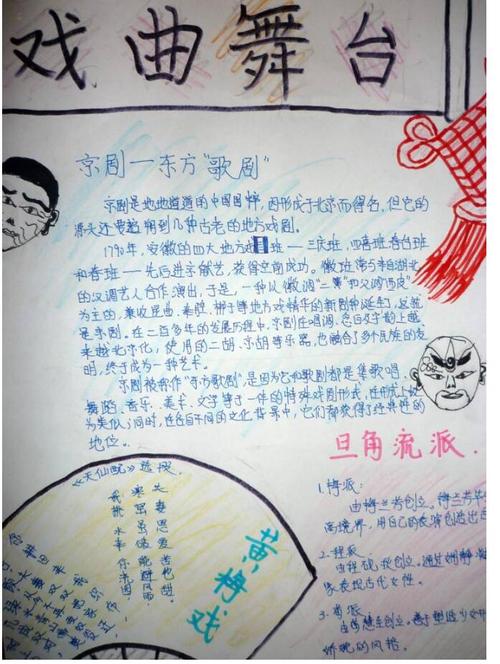 戏曲舞台
京剧—东方“歌剧”
京剧是地地道道的中国国粹，因形成于北京而得名，但它的
源头还要追溯到几种古老的地方戏剧。
1790年，安徽的四大地方戏班——三庆班、四喜班、春台班
和春班——先后进京献艺，获得空前成功。徽班常与来自湖北
的汉调艺人合作演出，于是，一种以徽调“二黄”和汉调“西皮”
为主的，兼收昆曲、秦腔、梆子等地方戏精华的新剧种诞生了，这就
是京剧。在二百多年的发展历程中，京剧在唱词、念白及字韵上越
来越北京化，使用的二胡、京胡等乐器，也融合了多个民族的发
明，终于成为一种艺术
京剧被称作“东方歌剧”，是因为它和歌剧都是集歌唱、
舞蹈、音乐、美术、文学等于一体的特殊戏剧形式，在形式上较
为类似；同时，在各自不同的文化背景中，它们都获得了经典性的
地位。
旦角流派
1.梅派：
由梅兰芳创立。
离境界，用自己的表演创造出
2.程派
由程砚秋创立。通过
象表现古代女性。
3.荀派
娇昵的风格。
《天仙配》选段
黄梅戏